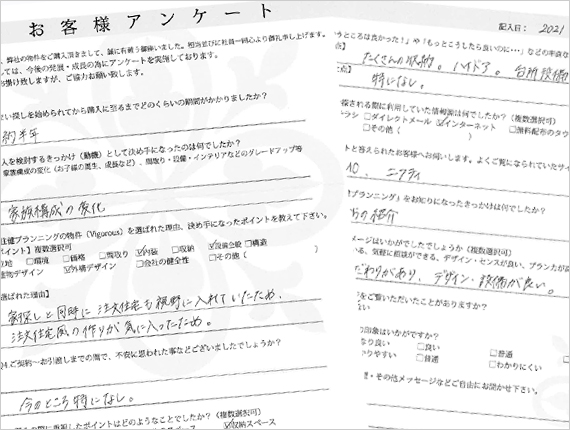 お客様アンケート
、弊社の物件をご購入頂きまして、誠に有難う御座いました。担当並びに社員一同心より御礼申し上げます。
しては、今後の発展・成長の為にアンケートを実施しております。
お掛け致しますが、ご協力お願い致します。
い探しを始められてから購入に至るまでどのくらいの期間がかかりましたか?
約半年
入を検討するきっかけ(動機)として決め手になったのは何でしたか?
家族構成の変化(お子様の誕生、成長など)、間取り・設備・インテリアなどのグレードアップ等
家族構成の変化
住建プランニングの物件(Vigorous)を選ばれた理由、決め手になったポイントを教えて下さい。
イント】複数選択可
地 □環境 □価格 □間取り ☑内装 □収納 ☑設備全般 □構造
建物デザイン ☑外構デザイン □会社の健全性 □その他( )
選ばれた理由】
家探しと同時に注文住宅も視野に入れていたため、
注文住宅風の作りが気に入ったため。
4.ご契約～お引渡しまでの間で、不安に思われた事などございましたでしょうか?
今のところ特になし。
の際に重視したポイントはどのようなことでしたか?(複数選択可)
☑収納スペース
記入日:2021
今ところは良かった!」や「もっとこうしたら良いのに…」などの率直な
点】
たくさんの収納。ハイドア。台所設備
点】
特になし。
探される際に利用していた情報源は何でしたか?(複数選択可)
ラシ □ダイレクトメール ☑インターネット □無料配布のタウ
□その他( )
トと答えられたお客様へお伺いします。よくご覧になられていたサイ
、ニフティ
プランニング』をお知りになったきっかけは何でしたか?
らの紹介
メージはいかがでしたでしょうか(複数選択可)
る、気軽に相談ができる、デザイン・センスが良い、プランカが高
だわりがあり、デザイン・設備が良い。
をご覧いただいたことがありますか?
ない
印象はいかがですか?
なり良い □良い □普通
りやすい □普通 □わかりにくい
想・その他メッセージなどご自由にお聞かせ下さい。